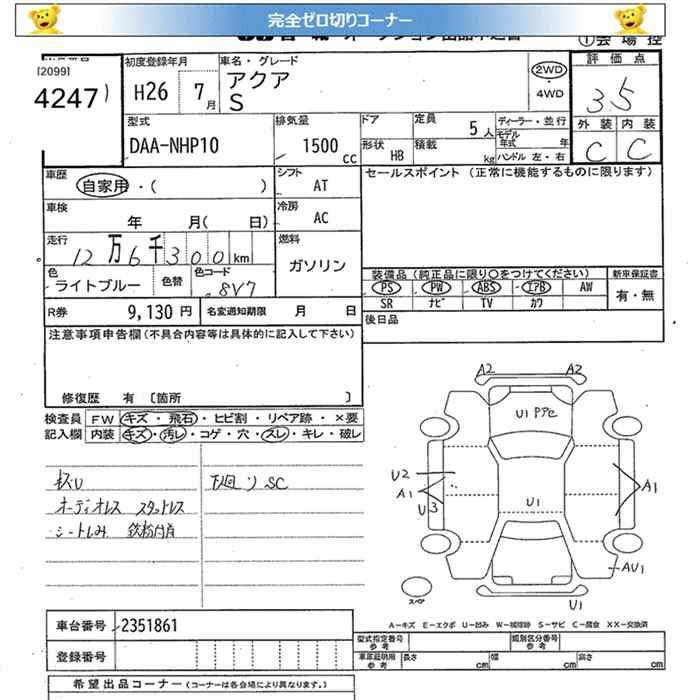 完全ゼロ切りコーナー
[2099]
4247
初度登録年月
H26 7月
車名・グレード
アクア
S
2WD
・
4WD
評価点
3.5
外装 内装
C C
型式
DAA-NHP10
排気量
1500 cc
ドア
形状 HB
定員
5人
積載
kg
ディーラー・並行
モデル
年式 年
ハンドル 左・右
車歴
自家用・( )
シフト
AT
車検
年 月( 日)
冷房
AC
走行
12万6千300km
燃料
ガソリン
色
ライトブルー
色替
色コード
8V7
R券 9,130 円
名変通知期限 月 日
セールスポイント(正常に機能するものに限ります)
装備品(純正品に限り○をつけてください)
PS PW ABS エアB AW
SR ナビ TV カワ
新車保証書
有・無
後日品
注意事項申告欄(不具合内容等は具体的に記入して下さい)
修復歴 有 〔箇所 〕
検査員
記入欄
FW キズ・飛石・ヒビ割・リペア跡・×要
内装 キズ・汚レ・コゲ・穴・スレ・キレ・破レ
オーディオレス スタットレス
シートしみ 鉄粉付着
下廻りSC
A2 A2
U1 PアセU1
U2
A1
U3
A1
U1
AU1
U1
スペア
A-キズ E-エクボ U-凹み W-補修跡 S-サビ C-腐食 XX-交換済
車台番号 2351861
登録番号
型式指定番号
参考
類別区分番号
参考
車庫証明用
参考
長さ cm 幅 cm 高さ cm
希望出品コーナー(コーナーは各会場により異なります。)